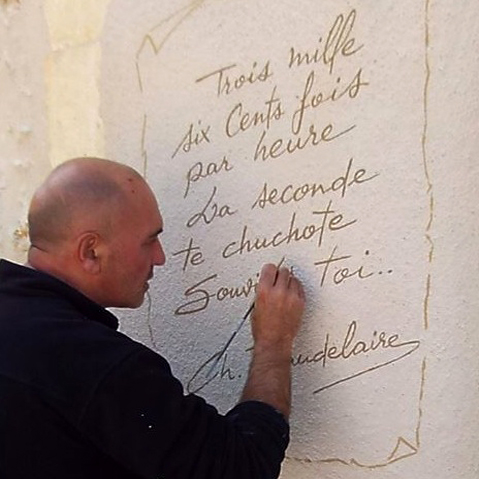 Trois mille
six Cents fois
par heure
La seconde
te chuchote
toi..
Ch.